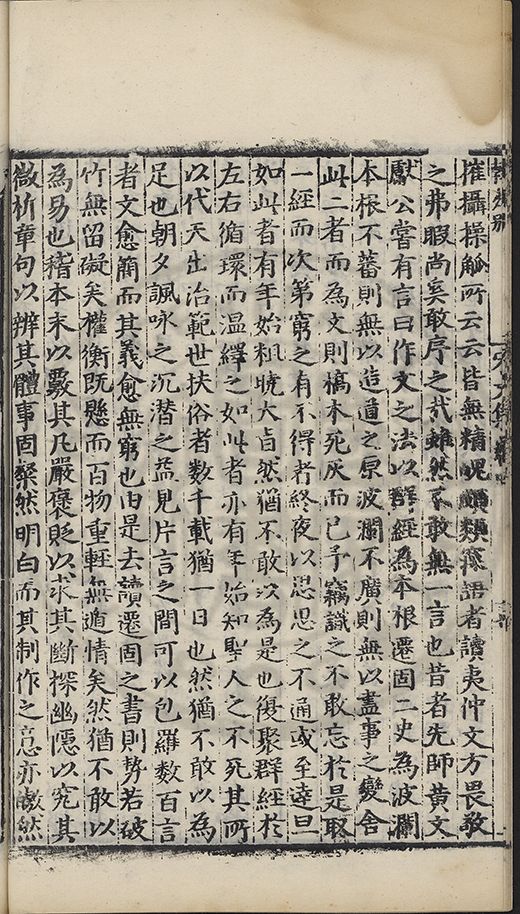 摧攝操觚所云云皆無精魄頗類寱語者讀夷仲文方畏敬
之弗暇尚奚敢序之哉雖然不敢無一言也昔者先師黃文
獻公嘗有言曰作文之法以群經為本根遷固二史為波瀾
本根不蕃則無以造道之原波瀾不廣則無以盡事之變舍
此二者而為文則槁木死灰而已予竊識之不敢忘於是取
一經而次第窮之有不得者終夜以思思之不通或至達旦
如此者有年始粗曉大旨然猶不敢以為是也復聚群經於
左右循環而溫繹之如此者亦有年始知聖人之不死其所
以代天出治範世扶俗者数千載猶一日也然猶不敢以為
足也朝夕諷咏之沉潜之益見片言之間可以包羅数百言
者文愈簡而其義愈無窮也由是去讀遷固之書則勢若破
竹無留礙矣權衡既懸而百物重輕無遁情矣然猶不敢以
為易也稽本末以覈其凡嚴褒貶以求其斷探幽隱以究其
微析章句以辨其體事固粲然明白而其制作之意亦皦然